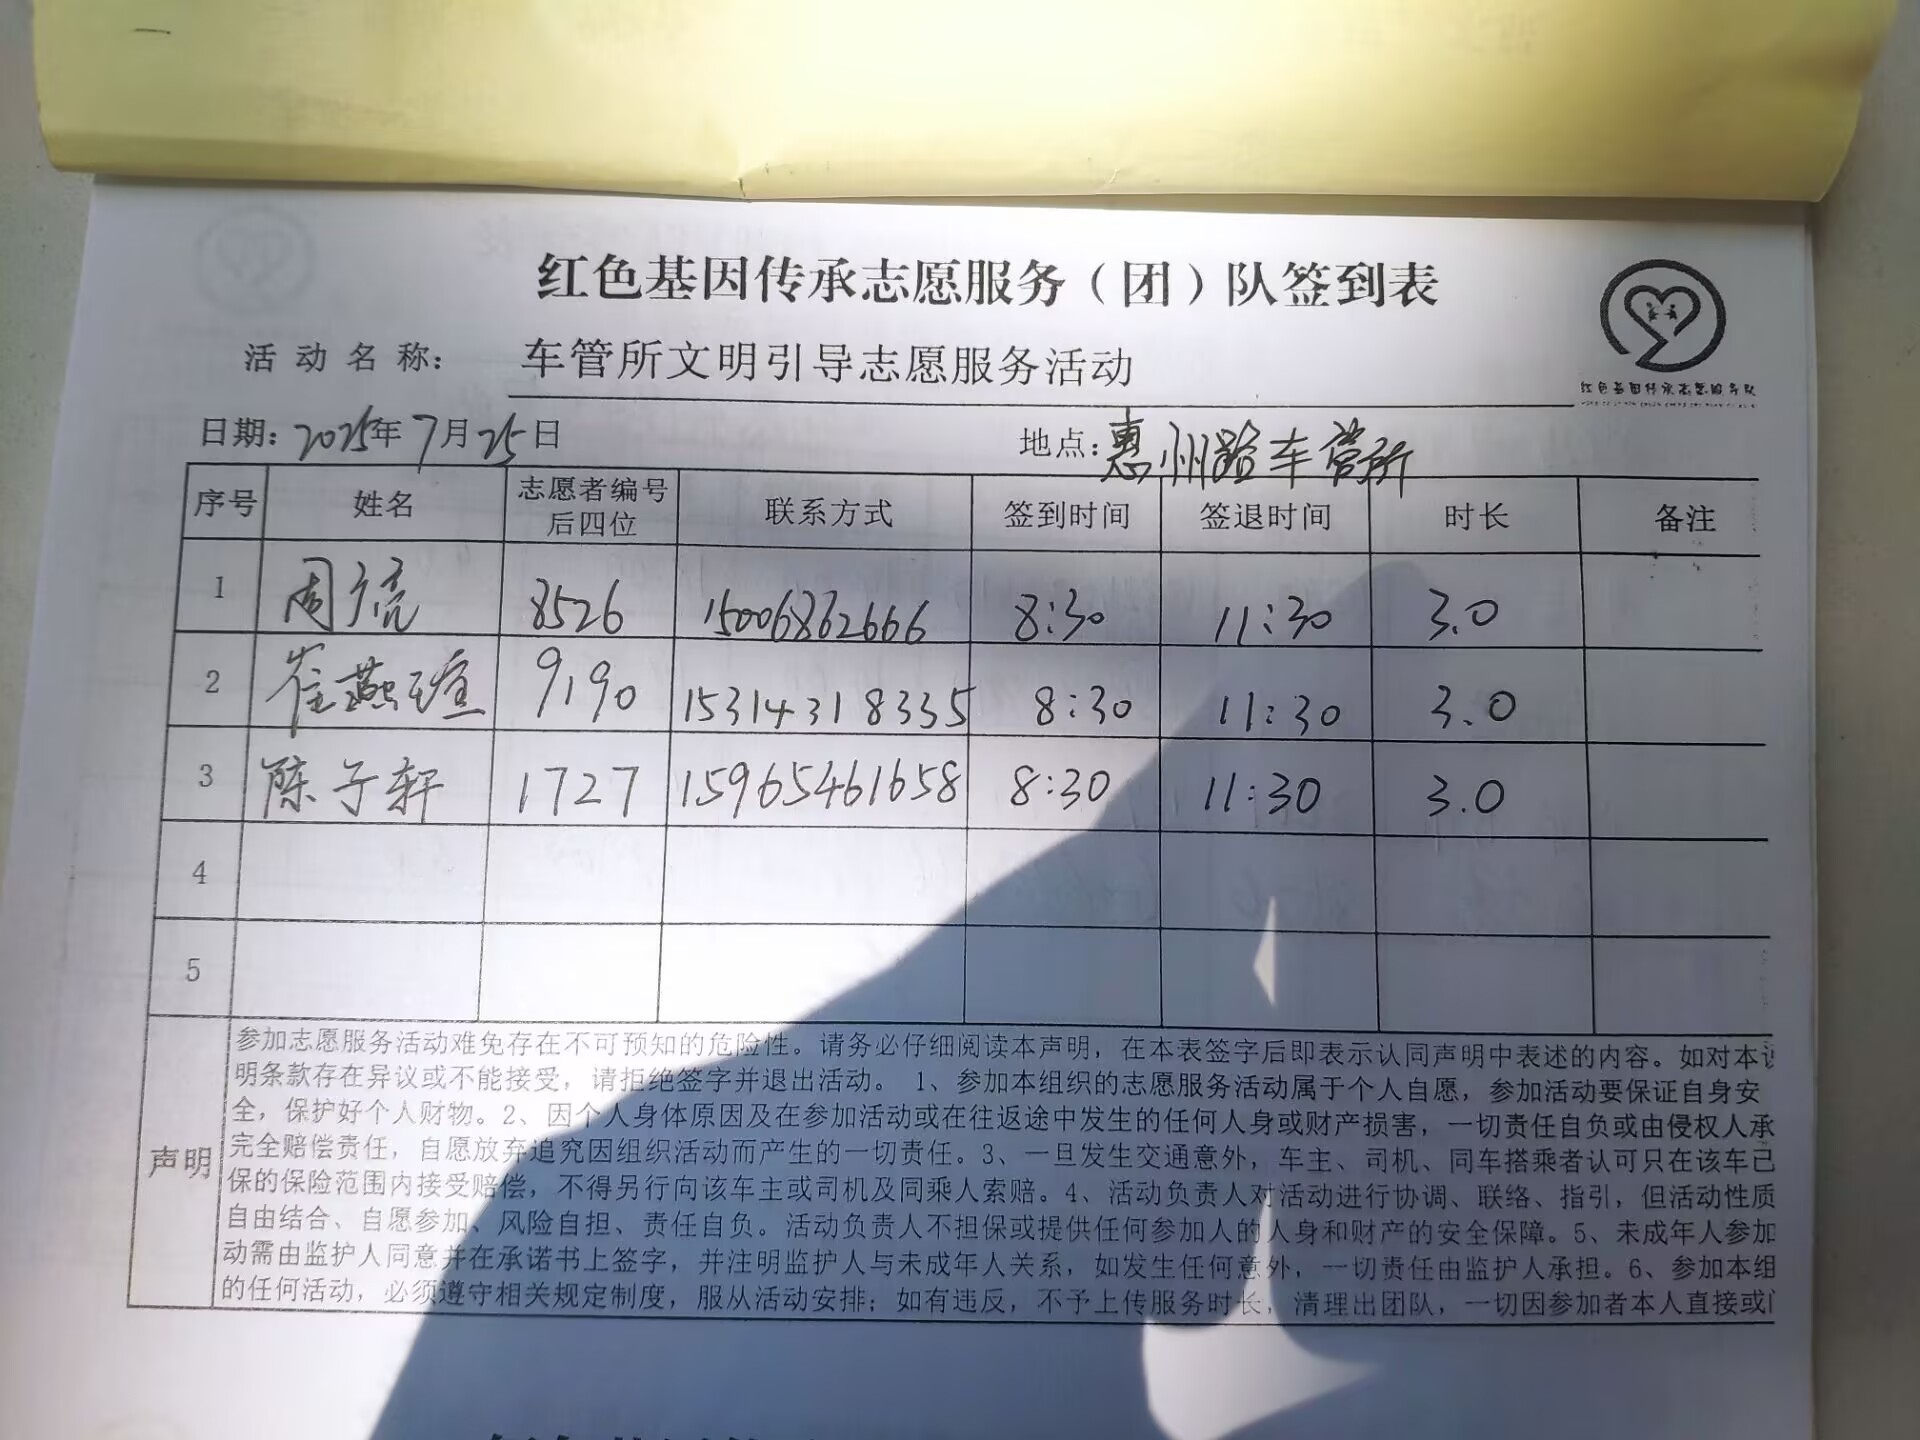 红色基因传承志愿服务（团）队签到表
红色基因传承志愿服务队
活动名称： 车管所文明引导志愿服务活动
日期：2025年7月25日 地点：惠州路车管所
序号 姓名 志愿者编号后四位 联系方式 签到时间 签退时间 时长 备注
1 周广亮 8526 15006862666 8:30 11:30 3.0
2 崔燕瑄 9190 15314318335 8:30 11:30 3.0
3 陈子轩 1727 15965461658 8:30 11:30 3.0
4
5
声明
参加志愿服务活动难免存在不可预知的危险性。请务必仔细阅读本声明，在本表签字后即表示认同声明中表述的内容。如对本
明条款存在异议或不能接受，请拒绝签字并退出活动。 1、参加本组织的志愿服务活动属于个人自愿，参加活动要保证自身安
全，保护好个人财物。2、因个人身体原因及在参加活动或在往返途中发生的任何人身或财产损害，一切责任自负或由侵权人承
完全赔偿责任，自愿放弃追究因组织活动而产生的一切责任。3、一旦发生交通意外，车主、司机、同车搭乘者认可只在该车已
保的保险范围内接受赔偿，不得另行向该车主或司机及同乘人索赔。4、活动负责人对活动进行协调、联络、指引，但活动性质
自由结合、自愿参加、风险自担、责任自负。活动负责人不担保或提供任何参加人的人身和财产的安全保障。5、未成年人参加
动需由监护人同意并在承诺书上签字，并注明监护人与未成年人关系，如发生任何意外，一切责任由监护人承担。6、参加本组
的任何活动，必须遵守相关规定制度，服从活动安排；如有违反，不予上传服务时长，清理出团队，一切因参加者本人直接或